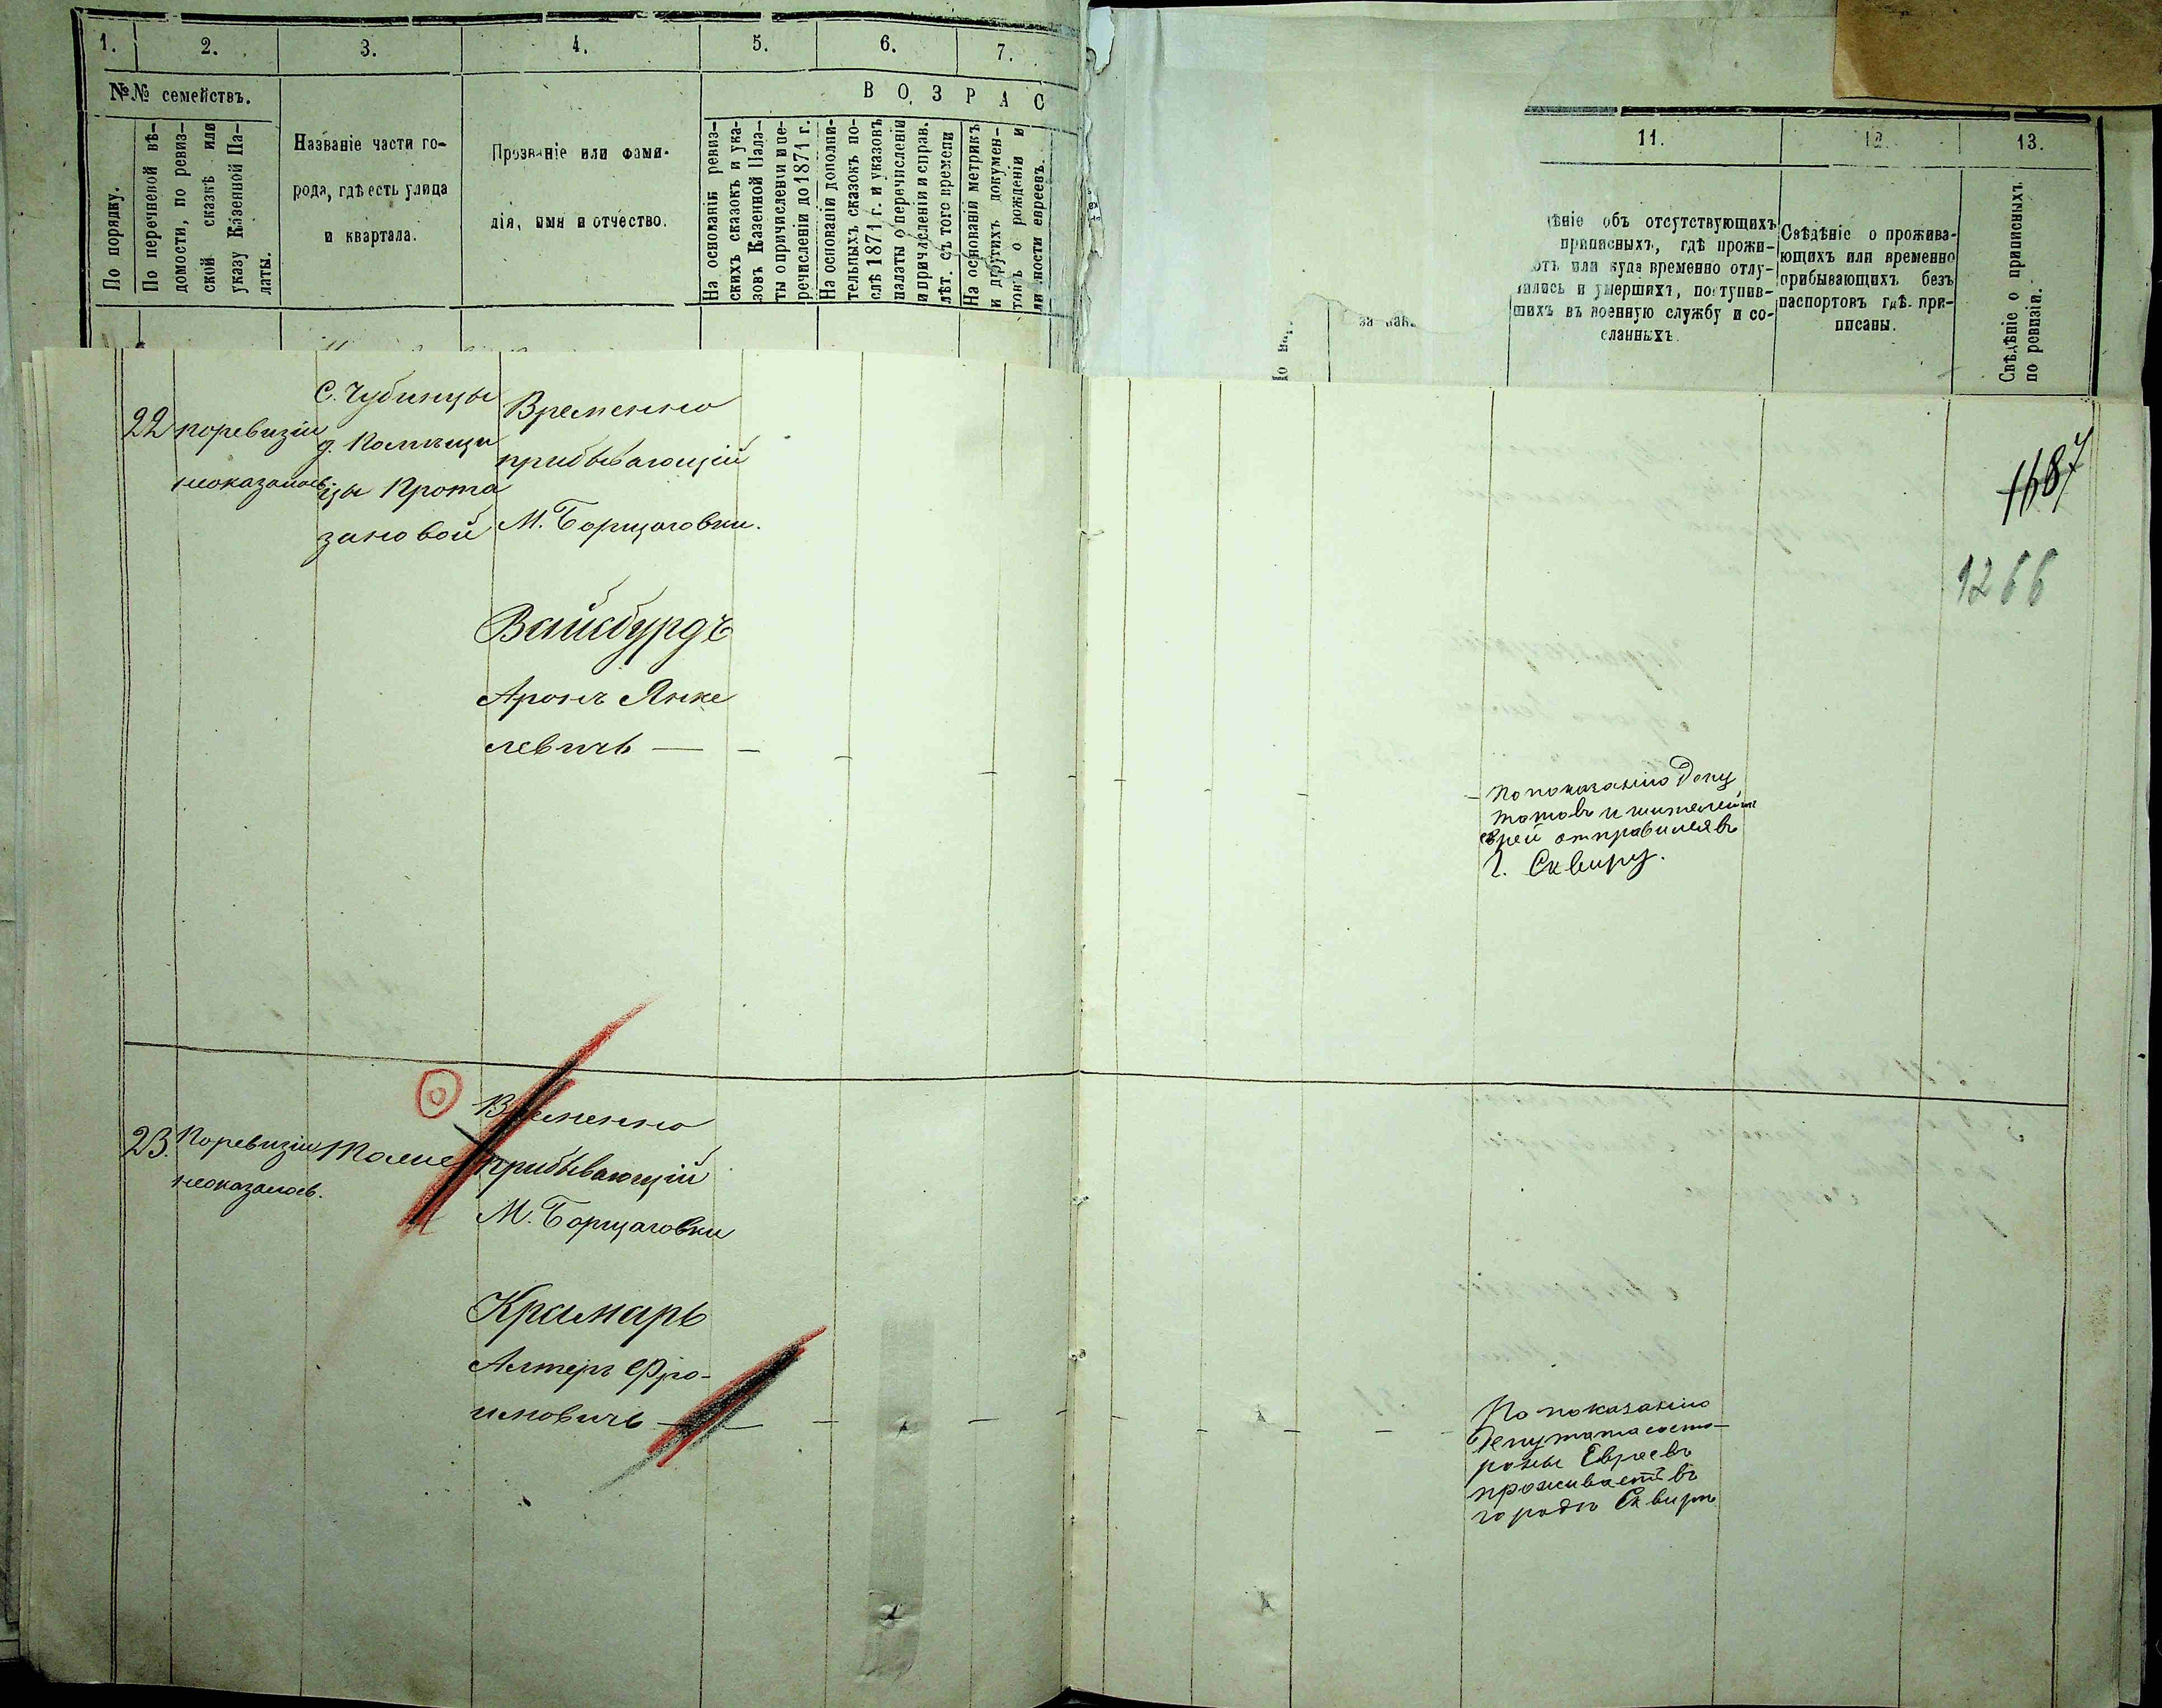 1. 2. 3. 4. 5. 6. 7.
№№ семействъ.
В О З Р А С
По порядку.
По перечневой вѣ-
домости, по ревиз-
ской сказкѣ или
указу Казенной Па-
латы.
Названіе части го-
рода, гдѣ есть улица
и квартала.
Прозваніе или фами-
лія, имя и отчество.
На основаніи ревиз-
скихъ сказокъ и ука-
зовъ Казенной Пала-
ты о причисленіи и пе-
речисленіи до 1871 г.
На основаніи дополни-
тельныхъ сказокъ по-
слѣ 1871 г. и указовъ
палаты о перечисленіи
и причисленіи и справ.
лѣт. съ того времени
На основаніи метрикъ
и другихъ докумен-
товъ о рожденіи и
личности евреевъ.
11. 12. 13.
за как
ѣніе объ отсутствующихъ
приписныхъ, гдѣ прожи-
ютъ или куда временно отлу-
чились и умершихъ, поступив-
шихъ въ военную службу и со-
сланныхъ.
Свѣдѣніе о прожива-
ющихъ или временно
прибывающихъ безъ
паспортовъ гдѣ при-
писаны.
Свѣдѣніе о приписныхъ
по ревизіи.
22
поревизіи
неоказалось
С. Чубинцы
д. Помѣщи
цы Прота
зановой
Временно
прибывающій
М. Борщаговки.
Вайсбурдъ
Аронъ Янке
левичъ —
По показанію Депу
татовъ и жителей
еврей отправился въ
г. Сквиру.
1266
23.
Поревизіи
неоказалось.
Тоже
Временно
прибывающій
М. Борщаговки
Крамарь
Алтеръ Фро-
имовичъ —
По показанію
Депутата состо-
роны Евреевъ
проживаетъ въ
городѣ Сквирѣ